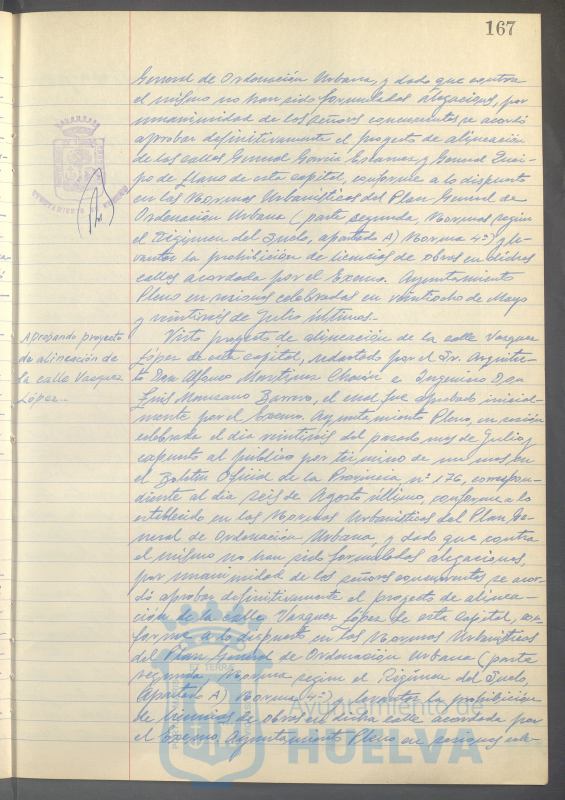 167
General de Ordenación Urbana, y dado que contra
el mismo no han sido formuladas alegaciones, por
unanimidad de los señores concurrentes se acordó
aprobar definitivamente el proyecto de alineación
de las calles General García Escamez y General Quei-
po de Llano de esta capital, conforme a lo dispuesto
en las Normas Urbanísticas del Plan General de
Ordenación Urbana (parte segunda, Normas según
el Régimen del Suelo, apartado A) Norma 4ª) y le-
vantar la prohibición de licencias de obras en dichas
calles acordada por el Excmo. Ayuntamiento
Pleno en sesiones celebradas en veintiocho de Mayo
y veintiseis de Julio últimos.
Aprobando proyecto
de alineación de
la calle Vazquez
López..
Visto proyecto de alineación de la calle Vazquez
López de esta capital, redactado por el Sr. Arquitec-
to Don Alfonso Martínez Chacón e Ingeniero Don
Luis Manzano Barrero, el cual fue aprobado inicial-
mente por el Excmo. Ayuntamiento Pleno, en sesión
celebrada el día veintiseis del pasado mes de Julio y
expuesto al público por término de un mes, en
el Boletín Oficial de la Provincia nº 176, correspon-
diente al día seis de Agosto último, conforme a lo
establecido en las Normas Urbanísticas del Plan Ge-
neral de Ordenación Urbana, y dado que contra
el mismo no han sido formuladas alegaciones,
por unanimidad de los señores concurrentes se acor-
dó aprobar definitivamente el proyecto de alinea-
ción de la calle Vazquez López de esta Capital, con-
forme a lo dispuesto en las Normas Urbanísticas
del Plan General de Ordenación Urbana (parte
segunda, Norma según el Régimen del Suelo,
Apartado A) Norma 4ª) y levantar la prohibición
de licencias de obras en dicha calle acordada por
el Excmo. Ayuntamiento Pleno en sesiones cele-
Ayuntamiento de
HUELVA